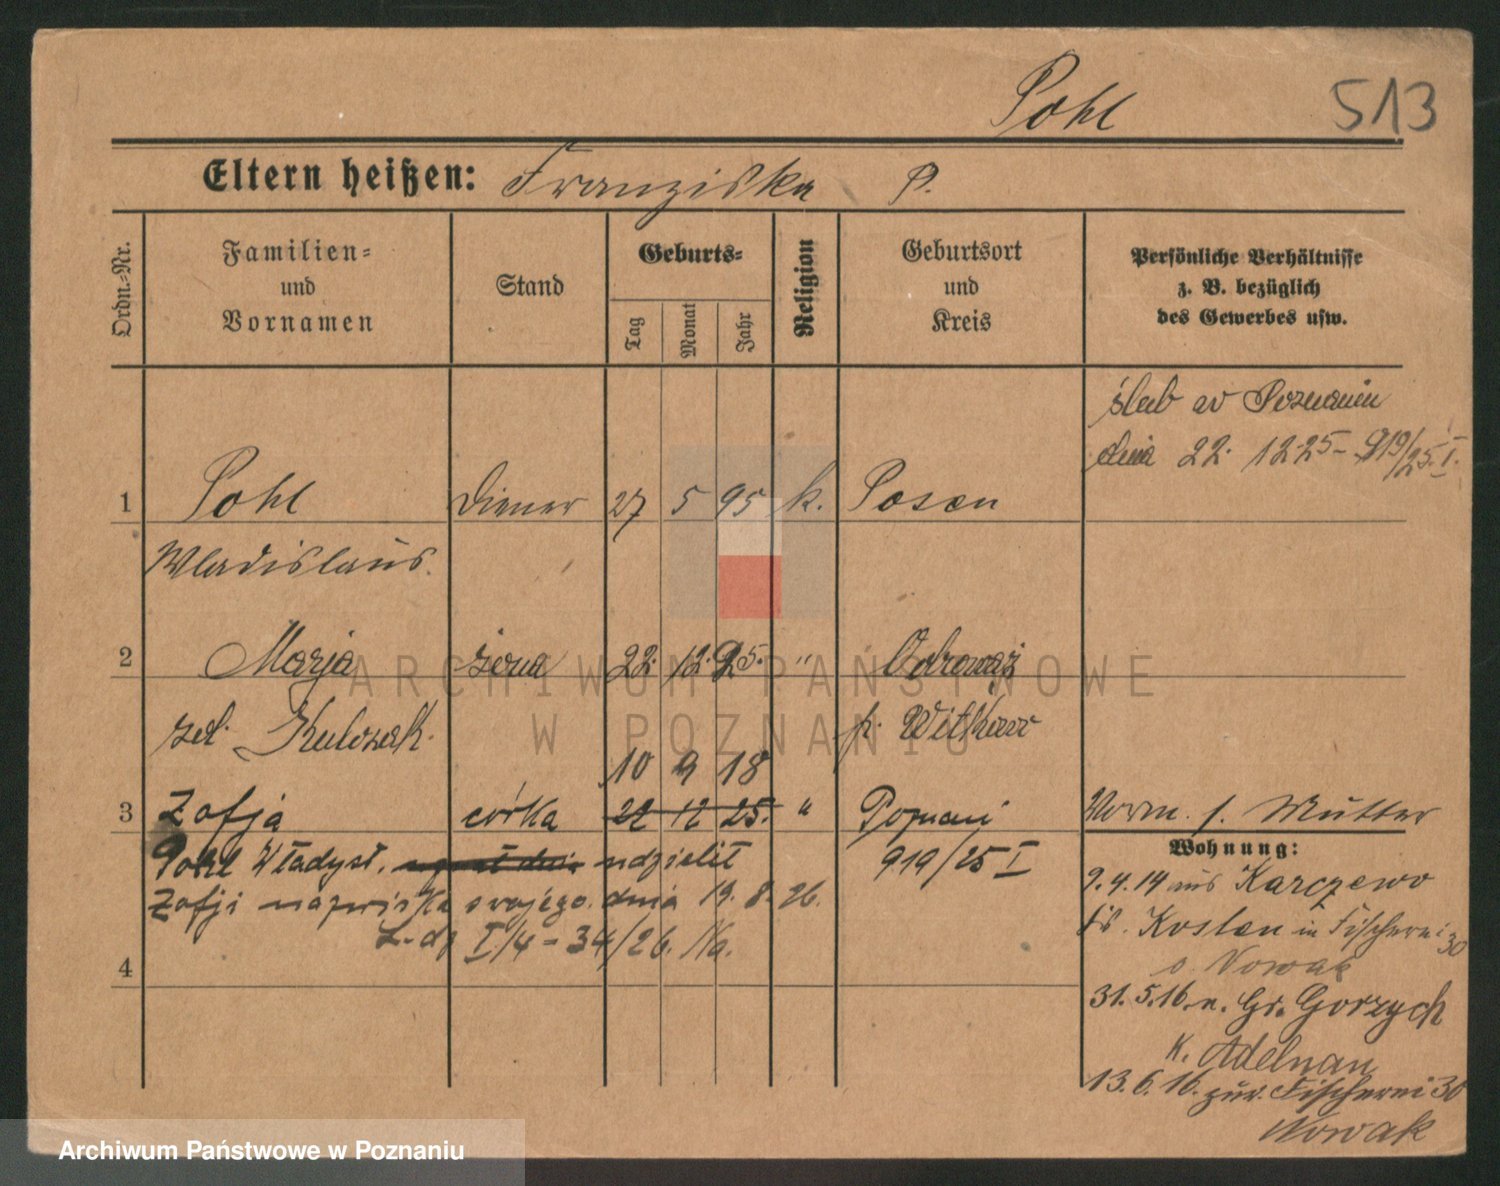 Pohl 513
Eltern heißen: Franziska P.
Ordn.-Nr.
Familien-
und
Vornamen
Stand
Geburts-
Tag
Monat
Jahr
Religion
Geburtsort
und
Kreis
Persönliche Verhältnisse
z. B. bezüglich
des Gewerbes usw.
ślub w Poznaniu
dnia 22. 12 25 - 919/25. I.
1 Pohl Diener 27 5 95 k. Posen
Wladislaus.
2 Marja żona 22. 12. 95. " Odrowąż
p. Witkowo
10 9 18
3 Zofja córka 22 12 25. " Poznań Vorm. s. Mutter
Pohl Władysł. udzielił 919/25 I
Zofji nazwiska swojego. dnia 19. 8. 26.
L. dz I/4 - 34/26. Ka.
4
Wohnung:
9.4.14 aus Karczewo
Ks. Kosten in Fischerei 30
b. Nowak
31. 5. 16. n. Gr. Gorzych
K. Adelnau
13. 6. 16. zur. Fischerei 30
Nowak
ARCHIWUM PAŃSTWOWE
W POZNANIU
Archiwum Państwowe w Poznaniu